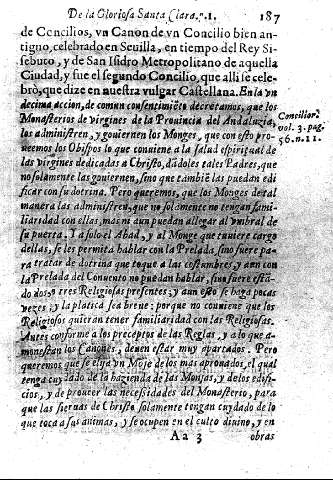 De la Gloriosa Santa Clara. 1. 187
de Concilios, vn Canon de vn Concilio bien an-
tiguo, celebrado en Seuilla, en tiempo del Rey Si-
sebuto, y de San Isidro Metropolitano de aquella
Ciudad, y fue el segundo Concilio, que alli se cele-
brò, que dize en nuestra vulgar Castellana. En la vn
decima accion, de comun consentimiẽto decretamos, que los
Monasterios de virgines de la Prouincia del Andaluzia,
los administren, y gouiernen los Monges, que con esto pro-
ueemos los Obispos lo que conuiene a la salud espiritual de
las virgines dedicadas a Christo, dãdoles tales Padres, que
no solamente las gouiernen, sino que tambiẽ las puedan edi
ficar con su dotrina. Pero queremos, que los Monges de tal
manera las administren, que no solamente no tengan fami-
liaridad con ellas, mas ni aun puedan allegar al vmbral de
su puerta. Y a solo el Abad, y al Monge que tuuiere cargo
dellas, se les permita hablar con la Prelada, sino fuere pa-
ra tratar de dotrina que toque a las costumbres, y aun con
la Prelada del Conuento no puedan hablar, sino fuere está-
do dos, o tres Religiosas presentes; y aun esto se haga pocas
vezes, y la platica sea breue: porque no conuiene que los
Religiosos quieran tener familiaridad con las Religiosas.
Antes conforme a los preceptos de las Reglas, y a lo que a-
monestan los Canones, deuen estar muy apartados. Pero
queremos que se elija vn Mõje de los mas aprouados, el qual
tenga cuydado de la hazienda de las Monjas, y de los edifi-
cios, y de proueer las necessidades del Monasterio, para
que las sieruas de Christo solamente tengan cuydado de lo
que toca a sus animas, y se ocupen en el culto diuino, y en
A a 3 obras
Concilior.
vol. 3. pag.
56. n. 11.